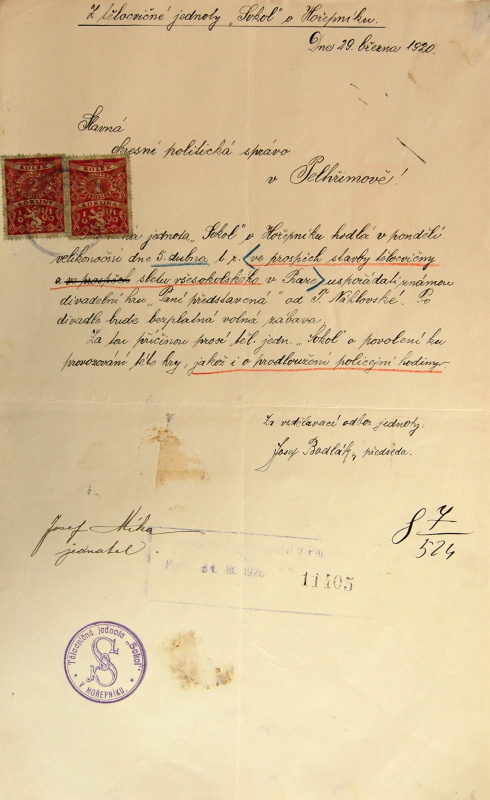 Z tělocvičné jednoty „Sokol" v Hořepníku.
Dne 29. března 1920.
Slavná
okresní politická správo
v Pelhřimově!
KOLEK KOLEK
2 1
KORUNY KORUNA
jednota „Sokol" v Hořepníku hodlá v pondělí
velikonoční dne 5. dubna t. r. (ve prospěch stavby tělocvičny
a ve prospěch sletu všesokolského v Praze) uspořádati známou
divadelní hru „Paní představená" od Po
divadle bude bezplatná volná zábava.
Za tou příčinou prosí těl. jedn. „Sokol" o povolení ku
provozování této hry, jakož i o prodloužení policejní hodiny.
Za vzdělávací odbor jednoty:
Josef Bodlák, předseda.
Josef Mika
jednatel.
8 7/524
31. III. 1920
11405
Tělocvičná jednota „Sokol"
V HOŘEPNÍKU.